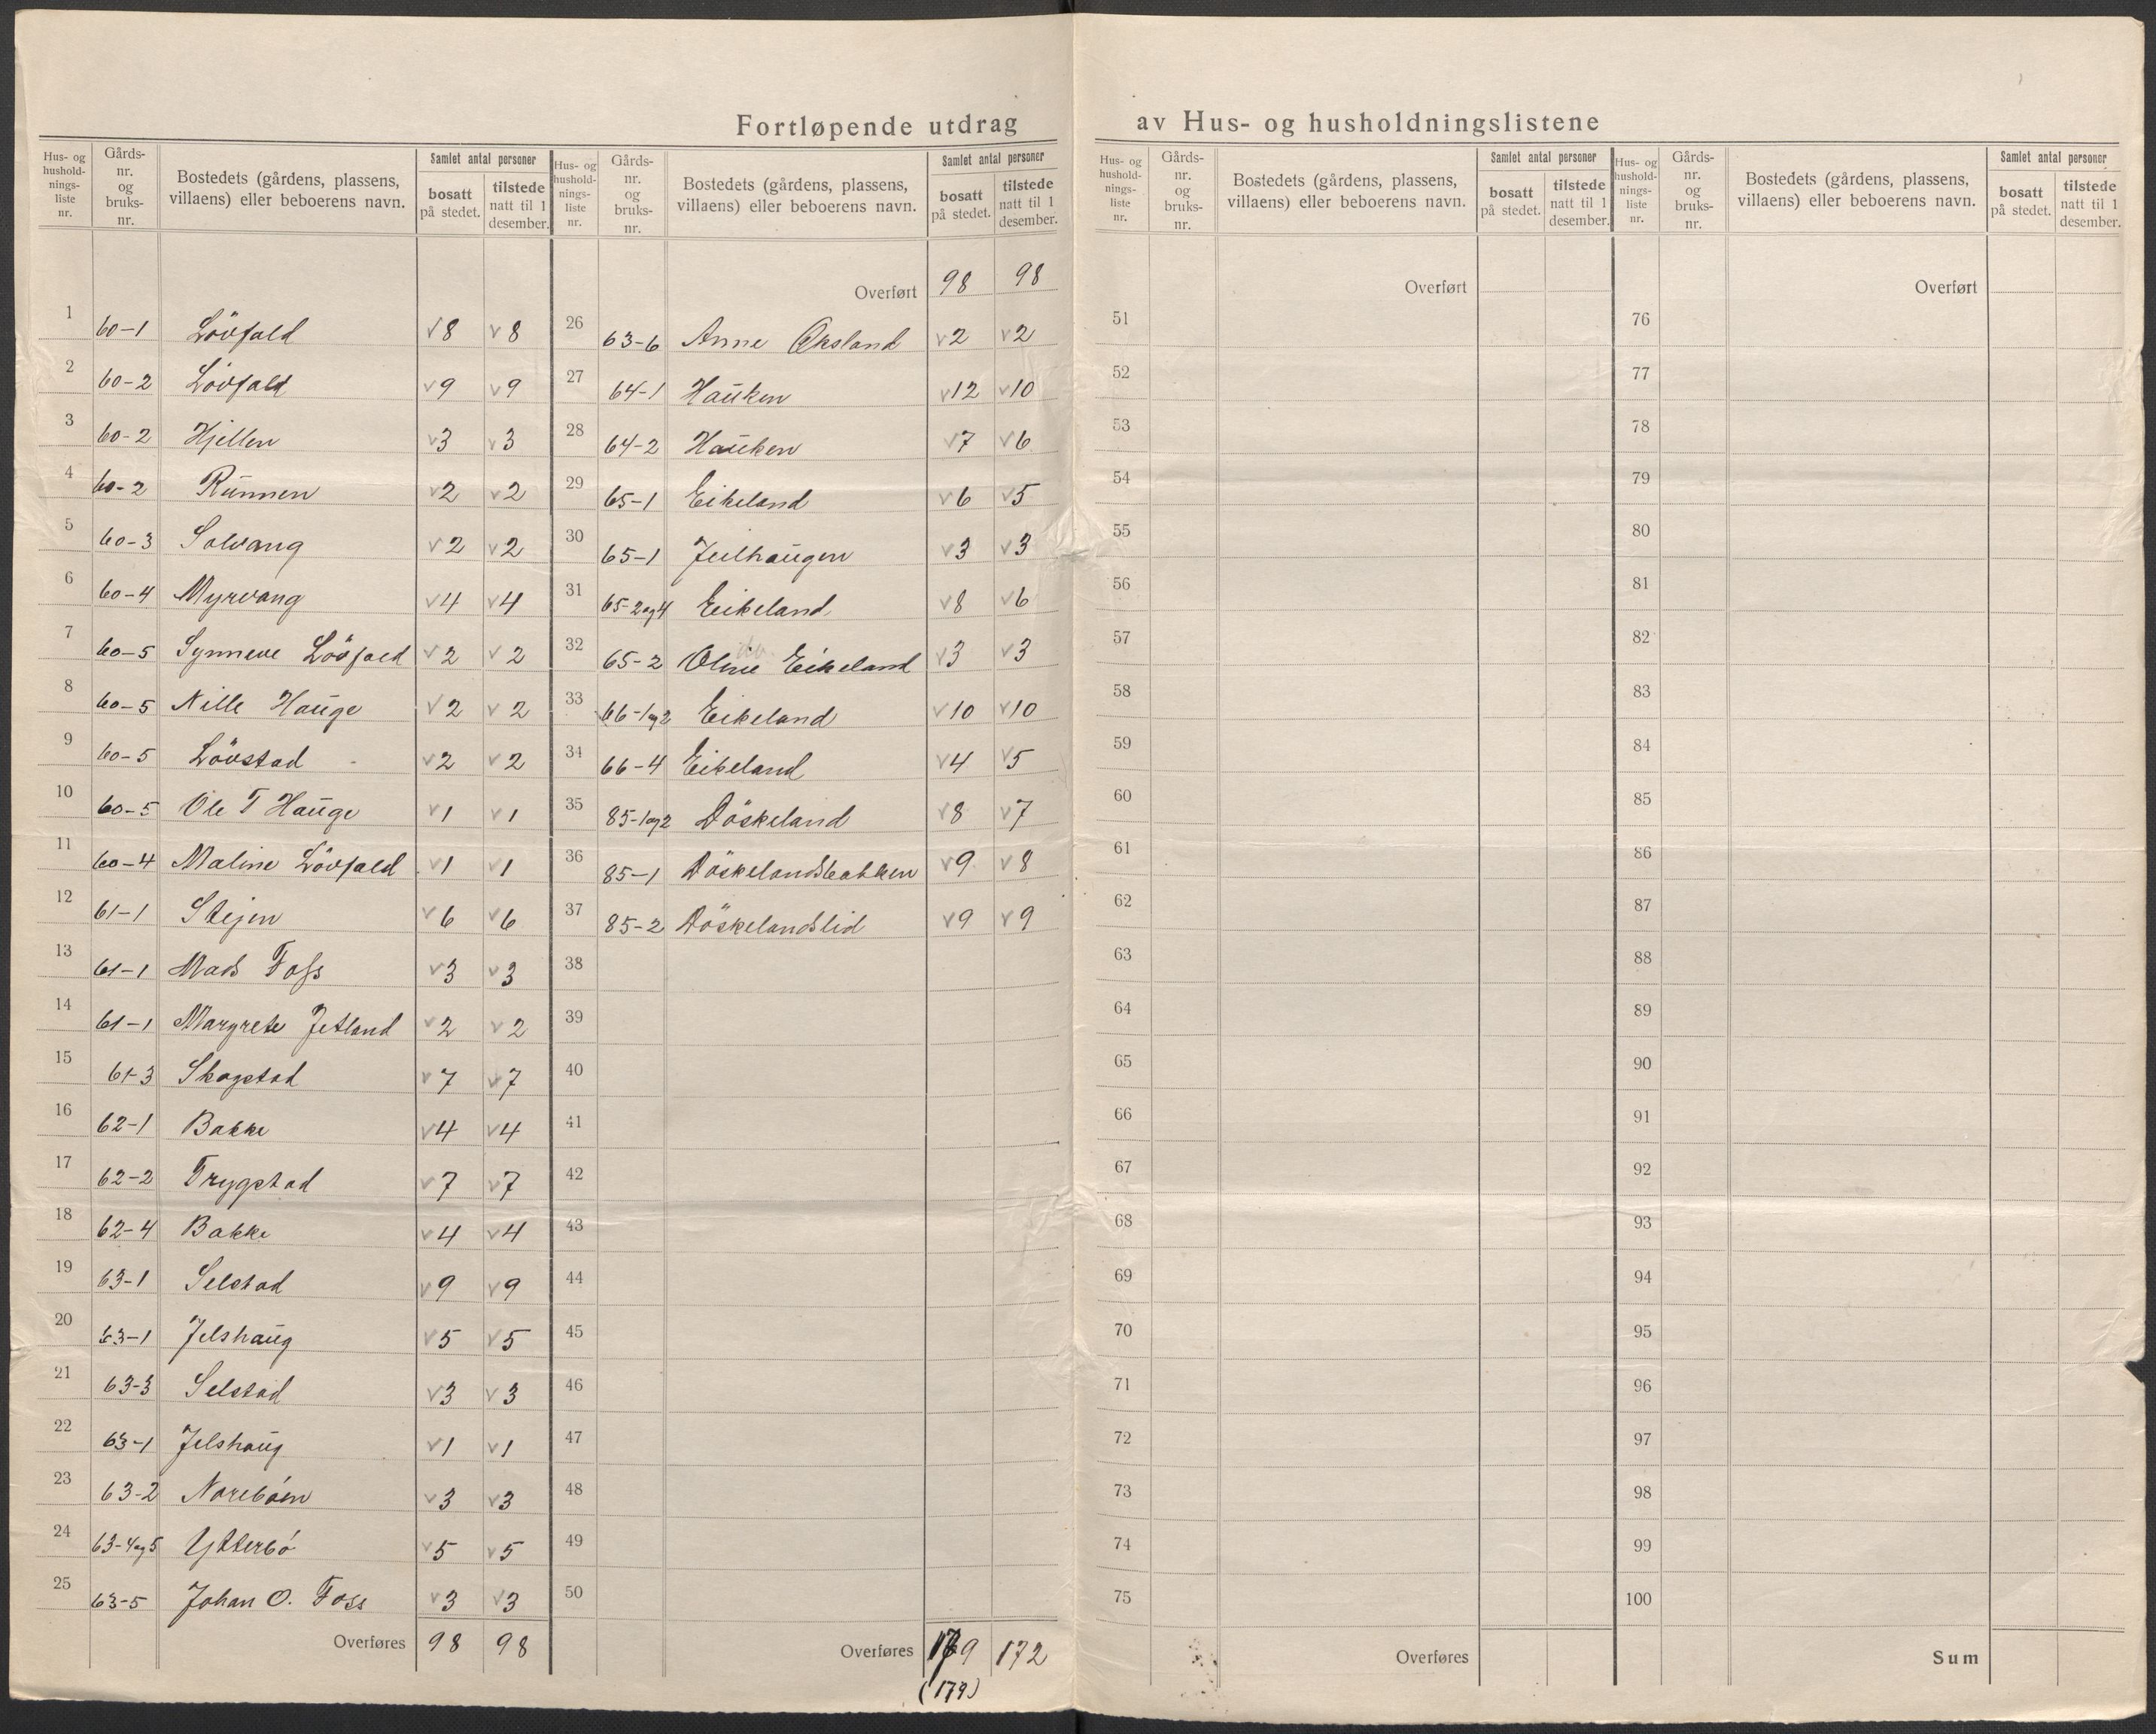 Fortløpende utdrag av Hus- og husholdningslistene
Hus- og hushold-nings-liste nr. Gårds-nr. og bruks-nr. Bostedets (gårdens, plassens, villaens) eller beboerens navn. Samlet antal personer bosatt på stedet. tilstede natt til 1 desember.
1 60-1 Lövfald √8 √8
2 60-2 Lövfald √9 √9
3 60-2 Hjellen √3 √3
4 60-2 Runnen √2 √2
5 60-3 Solvang √2 √2
6 60-4 Myrvang √4 √4
7 60-5 Synneve Lövfald √2 √2
8 60-5 Nille Hauge √2 √2
9 60-5 Lövstad √2 √2
10 60-5 Ole T Hauge √1 √1
11 60-4 Maline Lövfald √1 √1
12 61-1 Stejen √6 √6
13 61-1 Mads Foss √3 √3
14 61-1 Margrete Jetland √2 √2
15 61-3 Skogstad √7 √7
16 62-1 Bakke √4 √4
17 62-2 Trygstad √7 √7
18 62-4 Bakke √4 √4
19 63-1 Selstad √9 √9
20 63-1 Jelshaug √5 √5
21 63-3 Selstad √3 √3
22 63-1 Jelshaug √1 √1
23 63-2 Noreböen √3 √3
24 63-4og5 Ytterbö √5 √5
25 63-5 Johan O. Foss √3 √3
Overføres 98 98
Hus- og hushold-nings-liste nr. Gårds-nr. og bruks-nr. Bostedets (gårdens, plassens, villaens) eller beboerens navn. Samlet antal personer bosatt på stedet. tilstede natt til 1 desember.
Overført 98 98
26 63-6 Anne Oksland √2 √2
27 64-1 Hauken √12 √10
28 64-2 Hauken √7 √6
29 65-1 Eikeland √6 √5
30 65-1 Jeilhaugen √3 √3
31 65-2og4 Eikeland √8 √6
32 65-2 Oline Eikeland √3 √3
33 66-1og2 Eikeland √10 √10
34 66-4 Eikeland √4 √5
35 85-1og2 Döskeland √8 √7
36 85-1 Döskelandsbakken √9 √8
37 85-2 Döskelandslid √9 √9
38
39
40
41
42
43
44
45
46
47
48
49
50
Overføres 179 172
(179)
Hus- og hushold-nings-liste nr. Gårds-nr. og bruks-nr. Bostedets (gårdens, plassens, villaens) eller beboerens navn. Samlet antal personer bosatt på stedet. tilstede natt til 1 desember.
Overført
51
52
53
54
55
56
57
58
59
60
61
62
63
64
65
66
67
68
69
70
71
72
73
74
75
Overføres
Hus- og hushold-nings-liste nr. Gårds-nr. og bruks-nr. Bostedets (gårdens, plassens, villaens) eller beboerens navn. Samlet antal personer bosatt på stedet. tilstede natt til 1 desember.
Overført
76
77
78
79
80
81
82
83
84
85
86
87
88
89
90
91
92
93
94
95
96
97
98
99
100
Sum